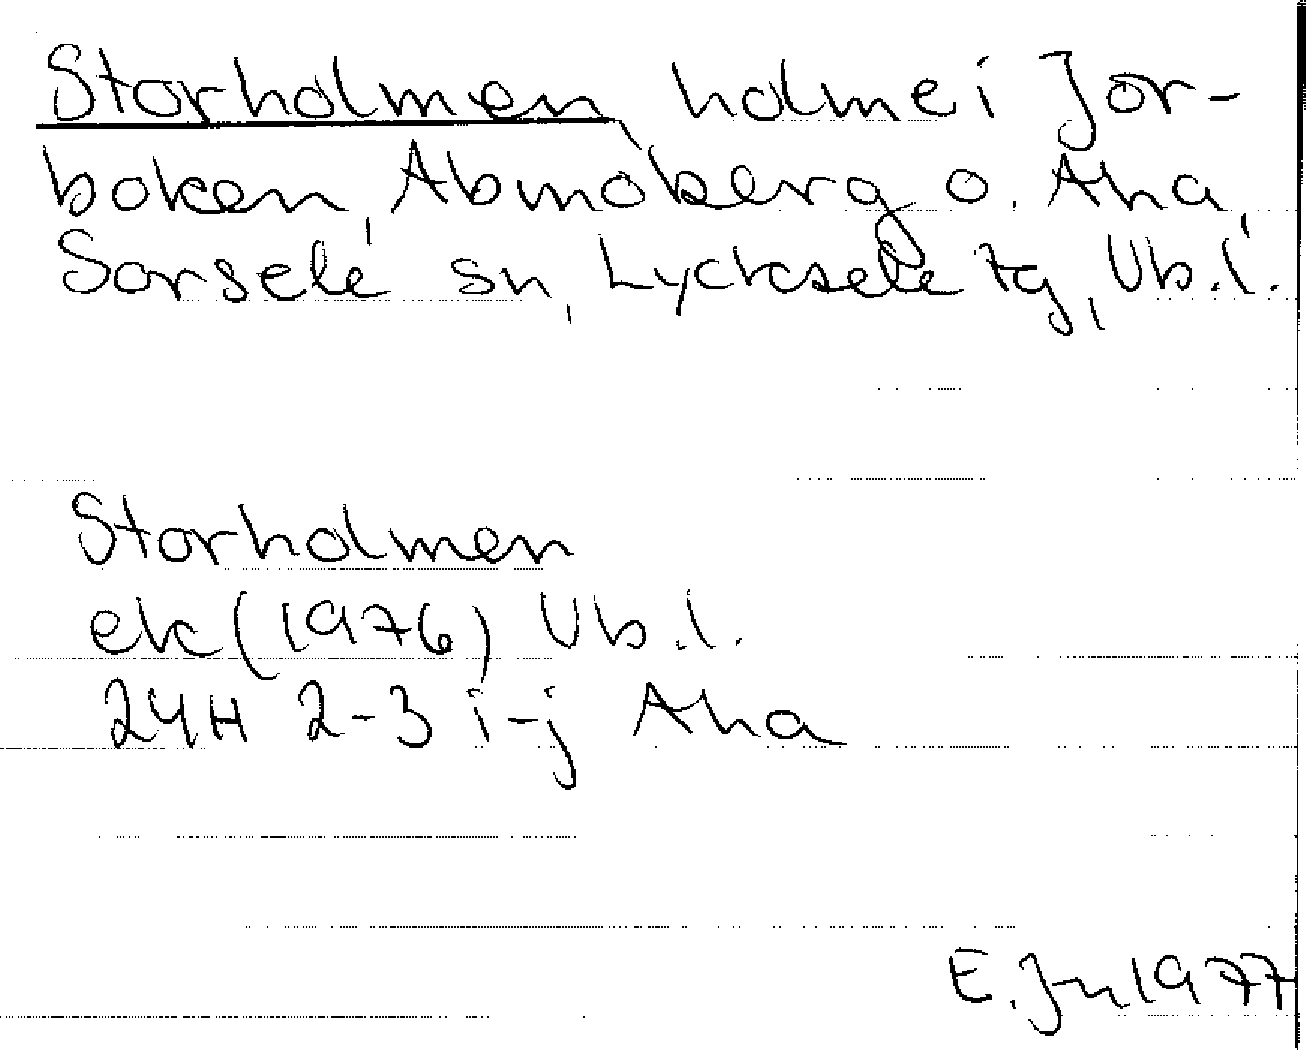 Storholmen, holme i Jor-
boken, Abmoberg o. Aha,
Sorsele sn, Lycksele tg, Vb.l.
Storholmen
ek (1976) Vb.l.
24H 2-3 i-j Aha
E. Jn 1977